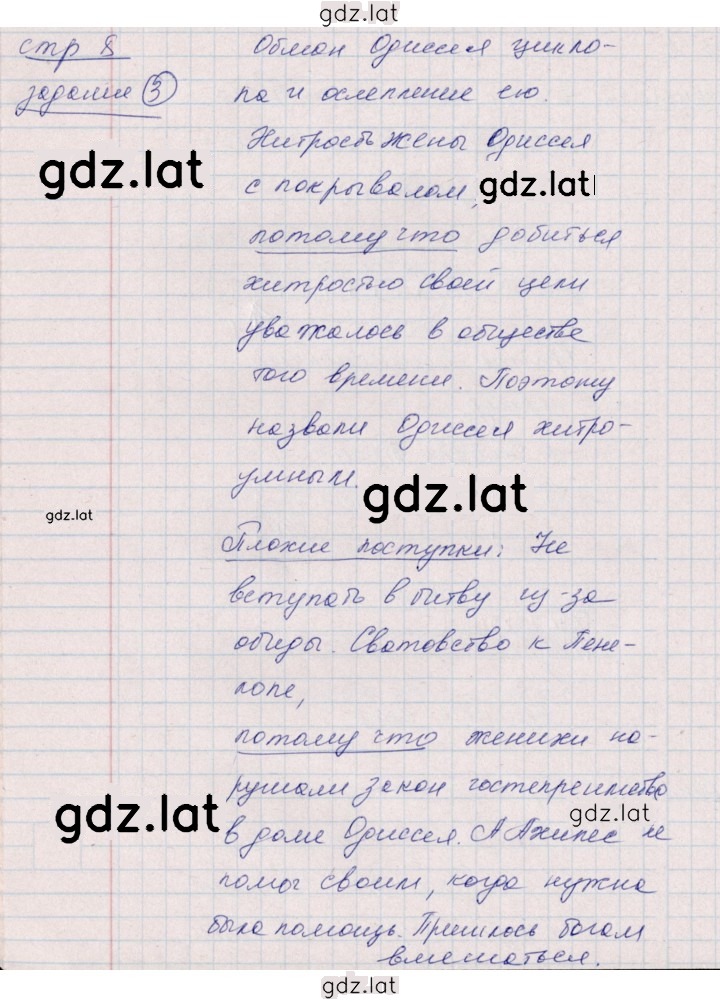 gdz.lat
стр 8
Обман Одиссея цикло-
задание 3
па и ослепление его.
Хитрость жены Одиссея
gdz.lat
с покрывалом,
gdz.lat
потому что добиться
хитростью своей цели
уважалось в обществе
того времени. Поэтому
назвали Одиссея хитро-
умным.
gdz.lat
gdz.lat
Плохие поступки: Не
вступать в битву из-за
обиды. Сватовство к Пене-
лопе,
потому что женихи на-
рушали закон гостеприимства
gdz.lat
gdz.lat
в доме Одиссея. А Ахиллес не
помог своим, когда нужна
была помощь. Пришлось богам
вмешаться.
gdz.lat